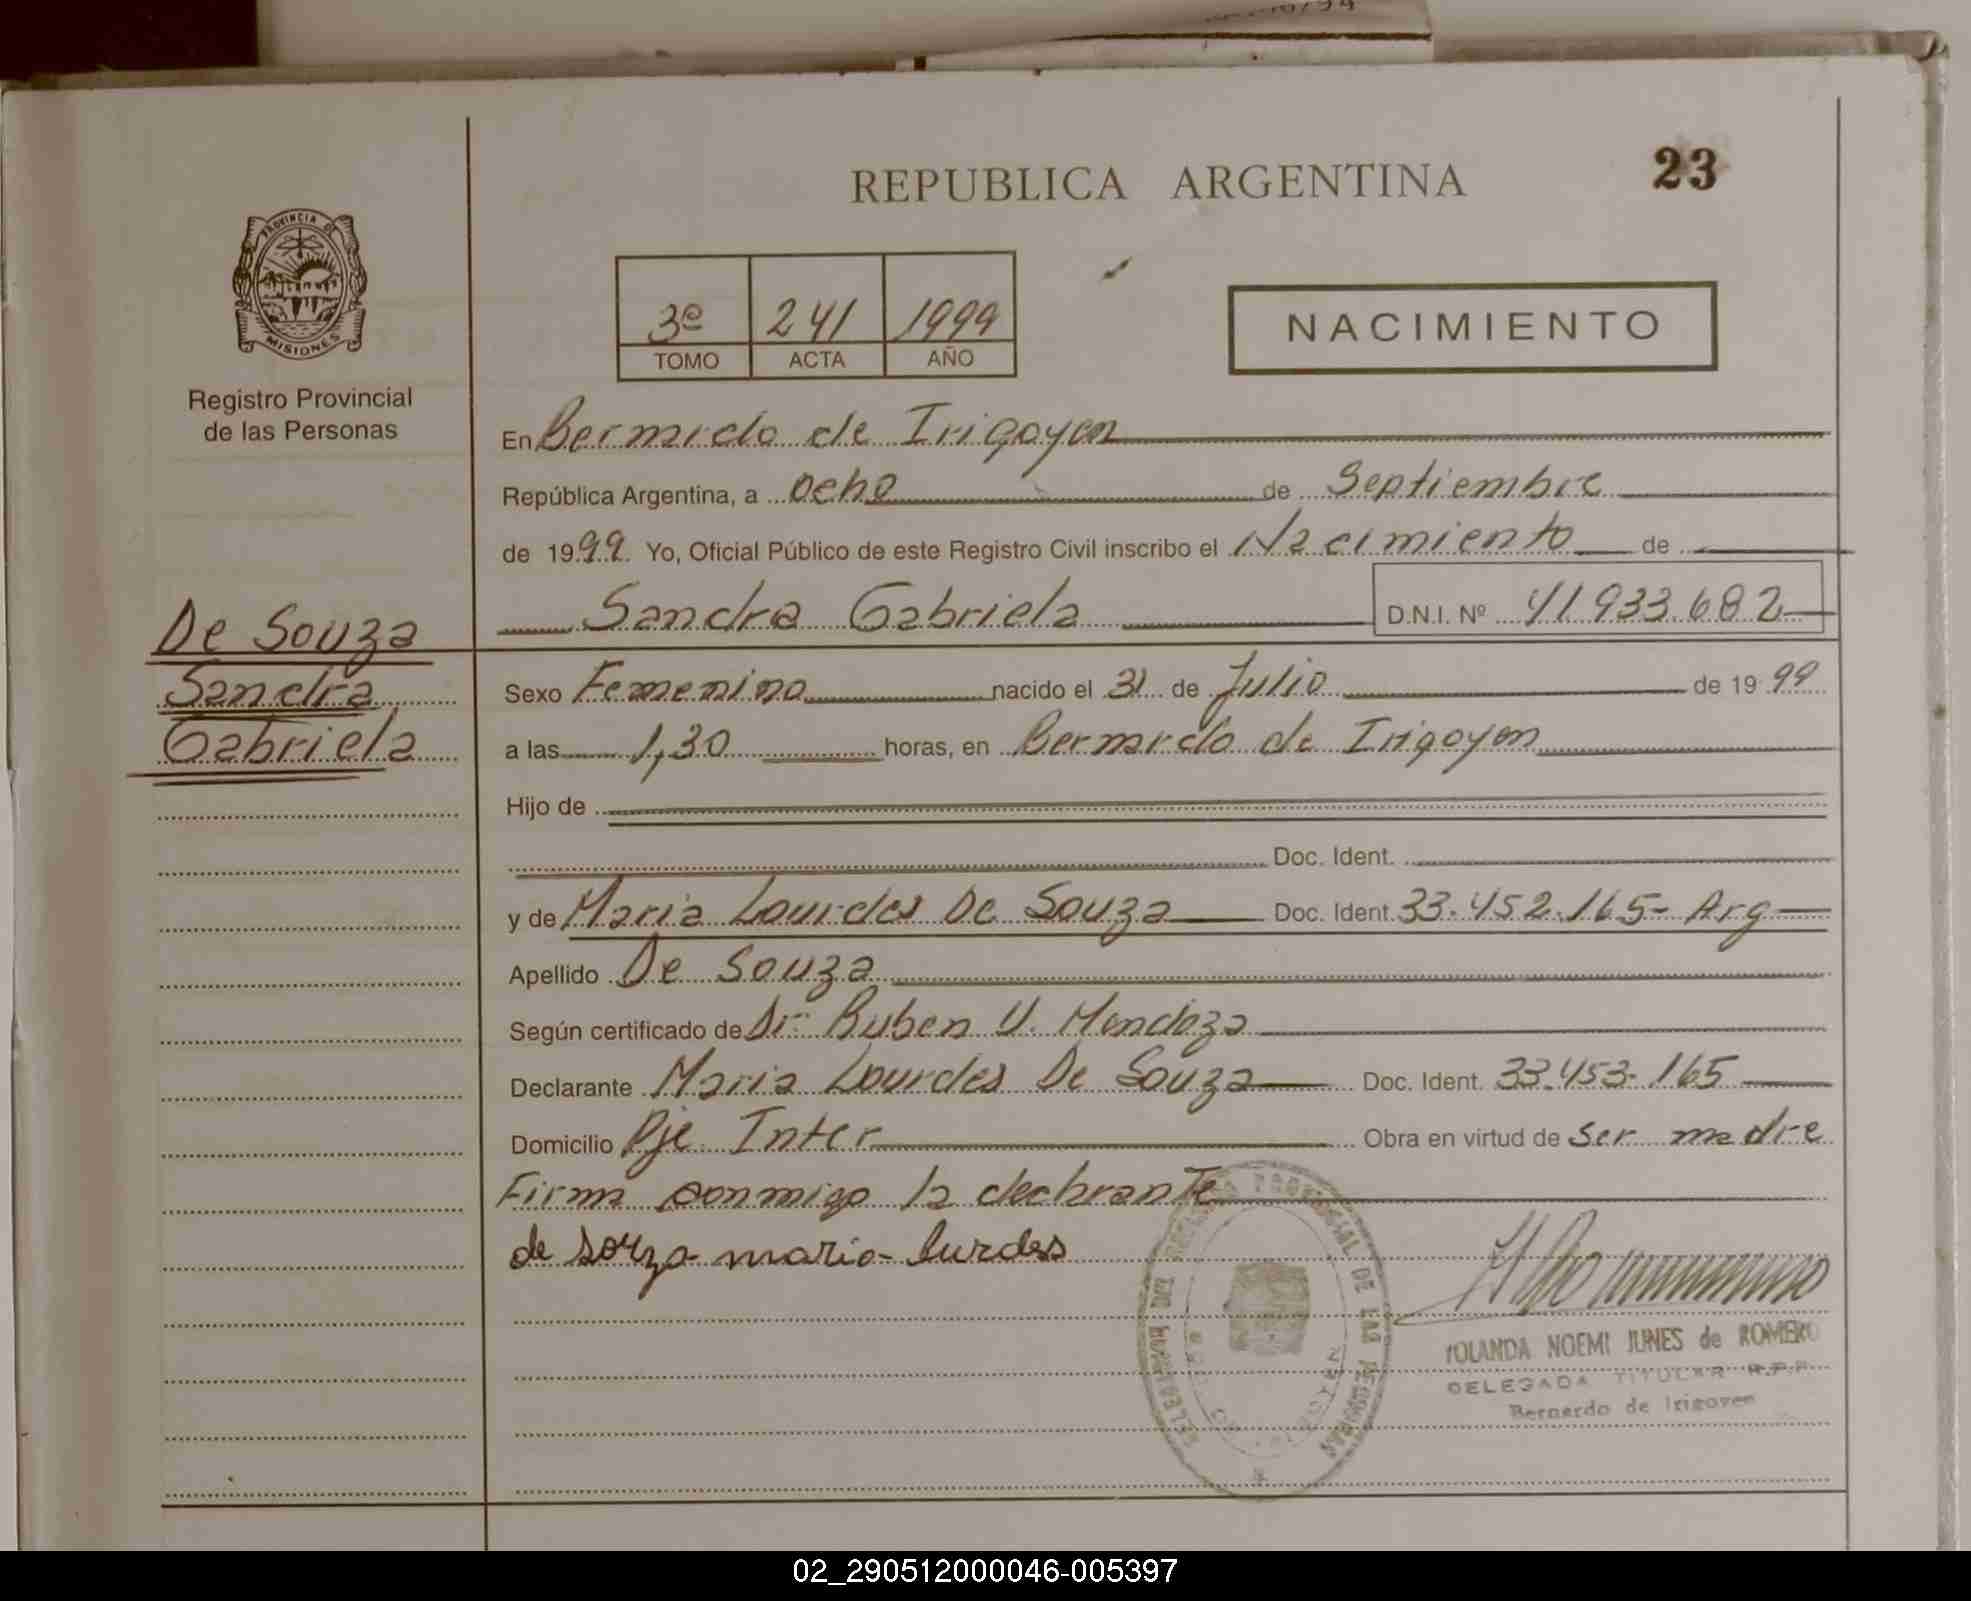 REPUBLICA ARGENTINA
23
PROVINCIA DE
MISIONES
Registro Provincial
de las Personas
3º 241 1999
TOMO ACTA AÑO
NACIMIENTO
En Bernardo de Irigoyen
República Argentina, a ocho de Septiembre
de 1999 Yo, Oficial Público de este Registro Civil inscribo el Nacimiento de
Sandra Gabriela D.N.I. Nº 41.933.682
De Souza
Sandra
Gabriela
Sexo Femenino nacido el 31 de Julio de 1999
a las 1,30 horas, en Bernardo de Irigoyen
Hijo de
Doc. Ident.
y de Maria Lourdes De Souza Doc. Ident. 33.452.165- Arg
Apellido De Souza
Según certificado de Dr. Ruben V. Mendoza
Declarante Maria Lourdes De Souza Doc. Ident. 33.453.165
Domicilio Pje. Inter Obra en virtud de ser madre
Firma conmigo la declarante
de souza maria lurdes
REGISTRO PROVINCIAL DE LAS PERSONAS
YOLANDA NOEMI JUNES de ROMERO
DELEGADA TITULAR R.P.P.
Bernardo de Irigoyen
02_290512000046-005397